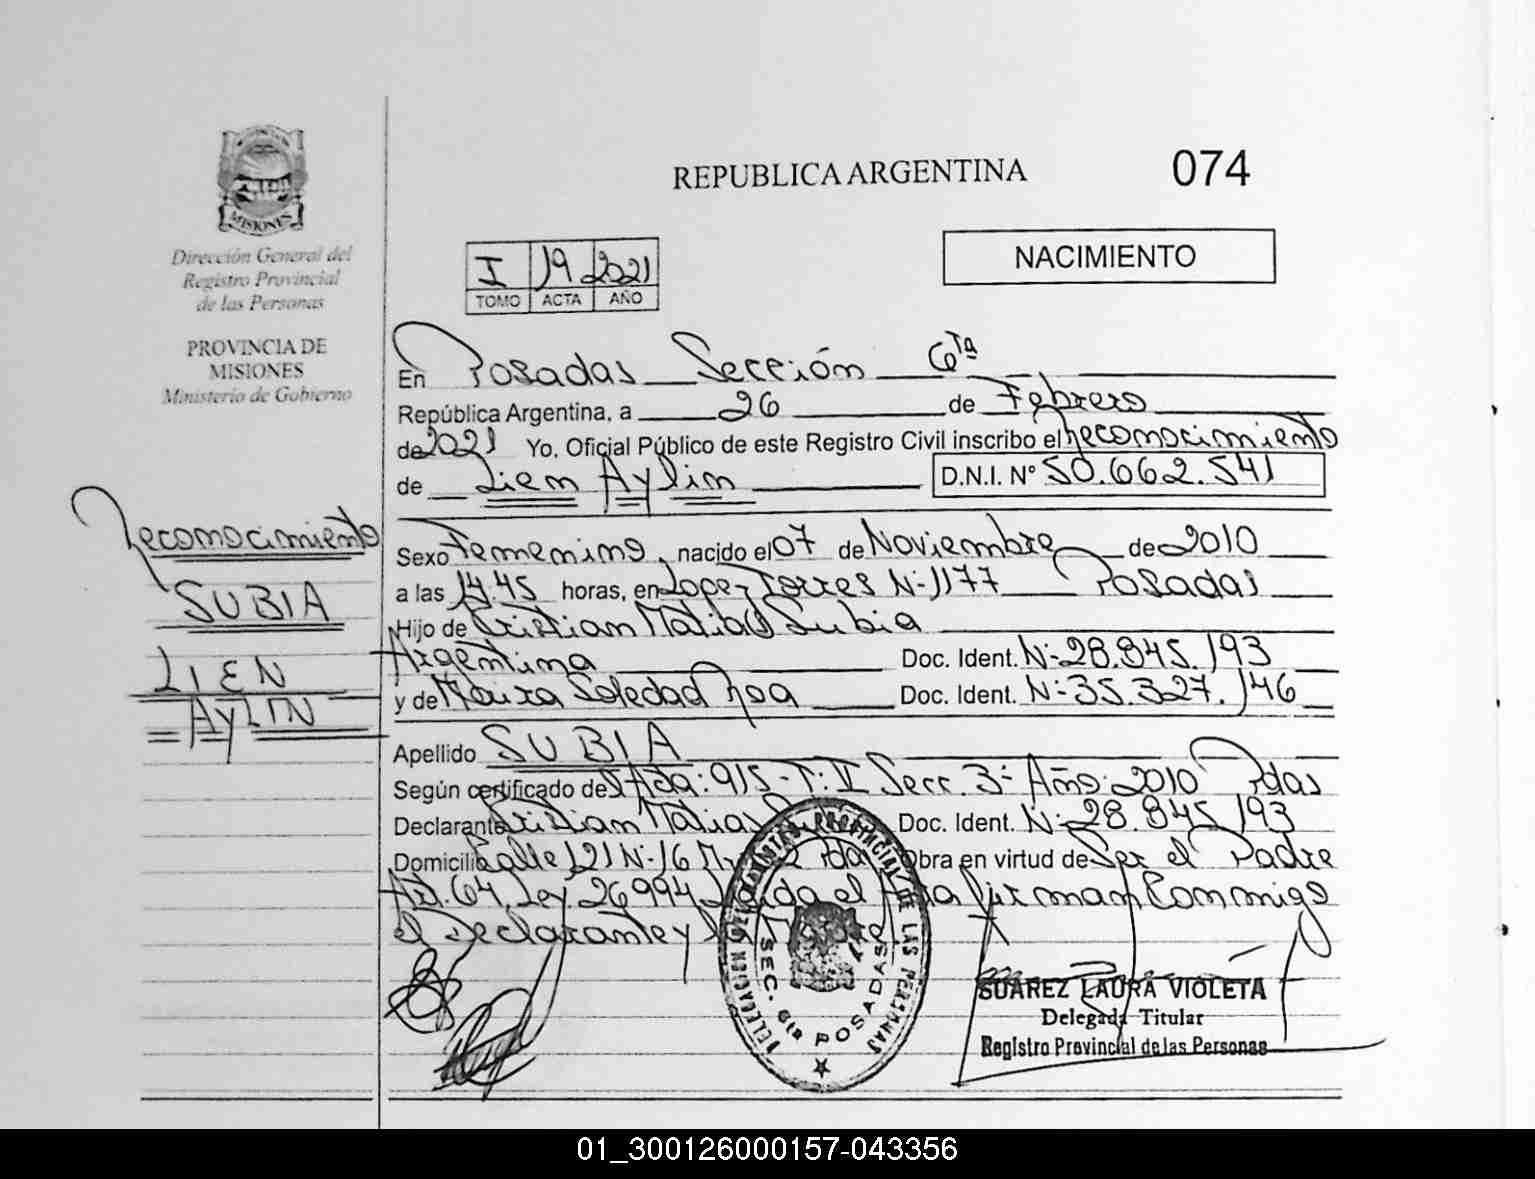 REPUBLICA ARGENTINA
074
MISIONES
Dirección General del
Registro Provincial
de las Personas
PROVINCIA DE
MISIONES
Ministerio de Gobierno
I 19 2021
TOMO ACTA AÑO
NACIMIENTO
En Posadas Sección 6ta
República Argentina, a 26 de Febrero
de 2021 Yo, Oficial Público de este Registro Civil inscribo el Reconocimiento
de Lien Aylin D.N.I. N° 50.662.541
Reconocimiento
SUBIA
LIEN
AyLIN
Sexo Femenino, nacido el 07 de Noviembre de 2010
a las 14.45 horas, en Lopez Torres N-1177 Posadas
Hijo de Cristian Matias Subia
Argentina Doc. Ident. N-28.845.193
y de Maira Soledad Roa Doc. Ident. N-35.327.146
Apellido SUBIA
Según certificado de Acta: 915-T: II Secc. 3- Año: 2010 Pdas
Declarante Cristian Matias Doc. Ident. N-28.845.193
Domicilio Calle 121 N-16 Pdas Obra en virtud de Ser el Padre
Art. 64. Ley. 26994 Leida el Acta firman Conmigo
el Declarante y la Madre
DELEGACION REGISTRO PROVINCIAL DE LAS PERSONAS
SEC. 6ta POSADAS
SUAREZ LAURA VIOLETA
Delegada Titular
Registro Provincial de las Personas
01_300126000157-043356